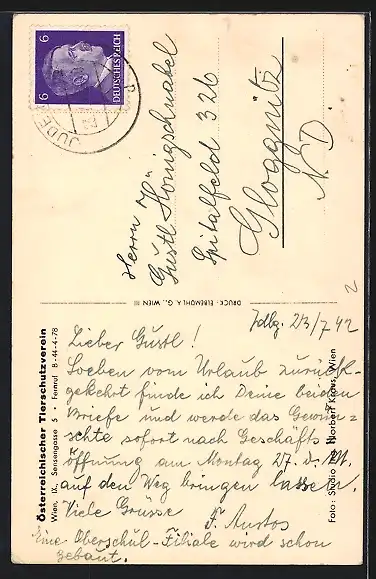 6 6
DEUTSCHES REICH
JUDE
Herrn
Gustl Honigschnabel
Spitalfeld 326
Gloggnitz
N. D.
DRUCK: ELBEMÜHL A. G., WIEN III
Österreichischer Tierschutzverein
Wien, IX., Sensengasse 5 • Fernruf B-44-4-78
Foto: Studio Norbert Kraus, Wien
2
Jdbg. 23/7 42
Lieber Gustl!
Soeben vom Urlaub zurück-
gekehrt finde ich Deine beiden
Briefe und werde das Gewün=
schte sofort nach Geschäfts
öffnung am Montag 27. d. M.
auf den Weg bringen lassen.
Viele Grüsse
Eine Oberschul-Filiale wird schon
gebaut.